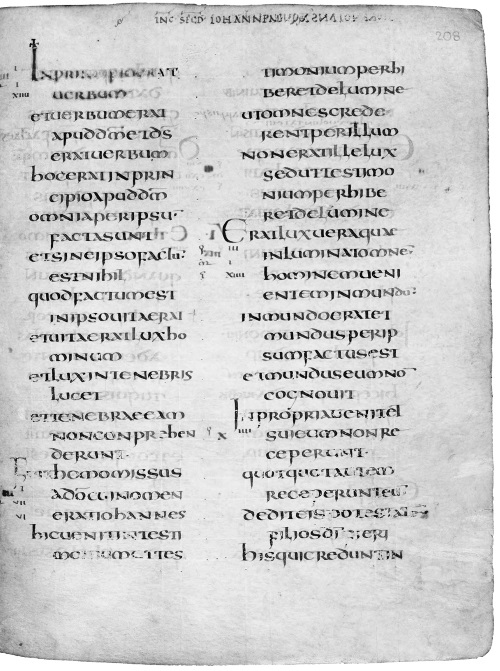 INC SECD IOHANN
208
INPRINCIPIOERAT
UERBUM
XIIII
ETUERBUMERAT
APUDDM̄ETDS
ERATUERBUM
HOCERATINPRIN
CIPIOAPUDDM̄
OMNIAPERIPSU·
FACTASUNT
ETSINEIPSOFACTU·
ESTNIHIL
QUODFACTUMEST
INIPSOUITAERAT
ETUITAERATLUXHO
MINUM
ETLUXINTENEBRIS
LUCET
ETTENEBRAEEAM
NONCONPREHEN
DERUNT
HOMOMISSUS
ADŌCUINOMEN
ERATIOHANNES
HICUENITINTESTI
MONIUMUTTES
TIMONIUMPERHI
BERETDELUMINE
UTOMNESCREDE
RENTPERILLUM
NONERATILLELUX
SEDUTTESTIMO
NIUMPERHIBE
RETDELUMINE
ERATLUXUERAQUAE
INLUMINATOMNE·
HOMINEMUENI
ENTEMINMUNDU·
INMUNDOERATET
MUNDUSPERIP
SUMFACTUSEST
ETMUNDUSEUMNO·
COGNOUIT
INPROPRIAUENITET
SUIEUMNONRE
CEPERUNT
QUOTQUOTAUTEM
RECEPERUNTEU·
DEDITEISPOTESTATE·
FILIOSDĪFIERI
HISQUICREDUNTIN